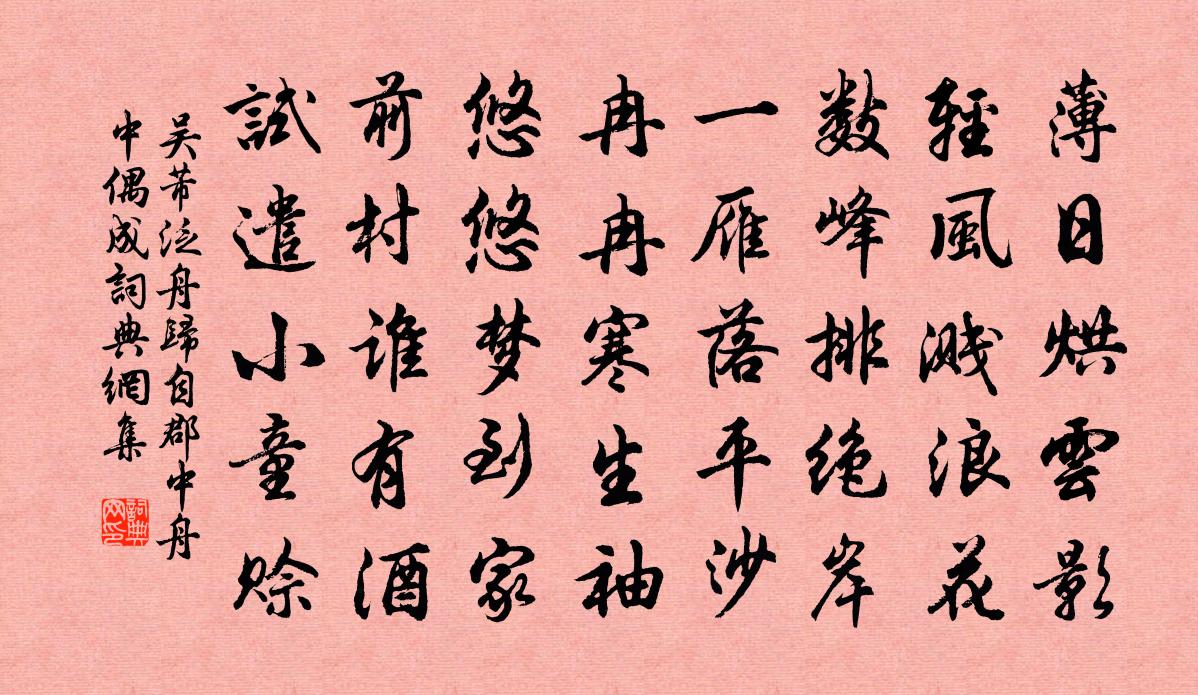 薄日烘雲影
輕風濺浪花
數峰排絶岸
一雁落平沙
冉冉寒生袖
悠悠梦到家
前村谁有酒
試遣小童賒
吴芾泛舟歸自郡中舟
中偶成詞典網集
詞典
网印